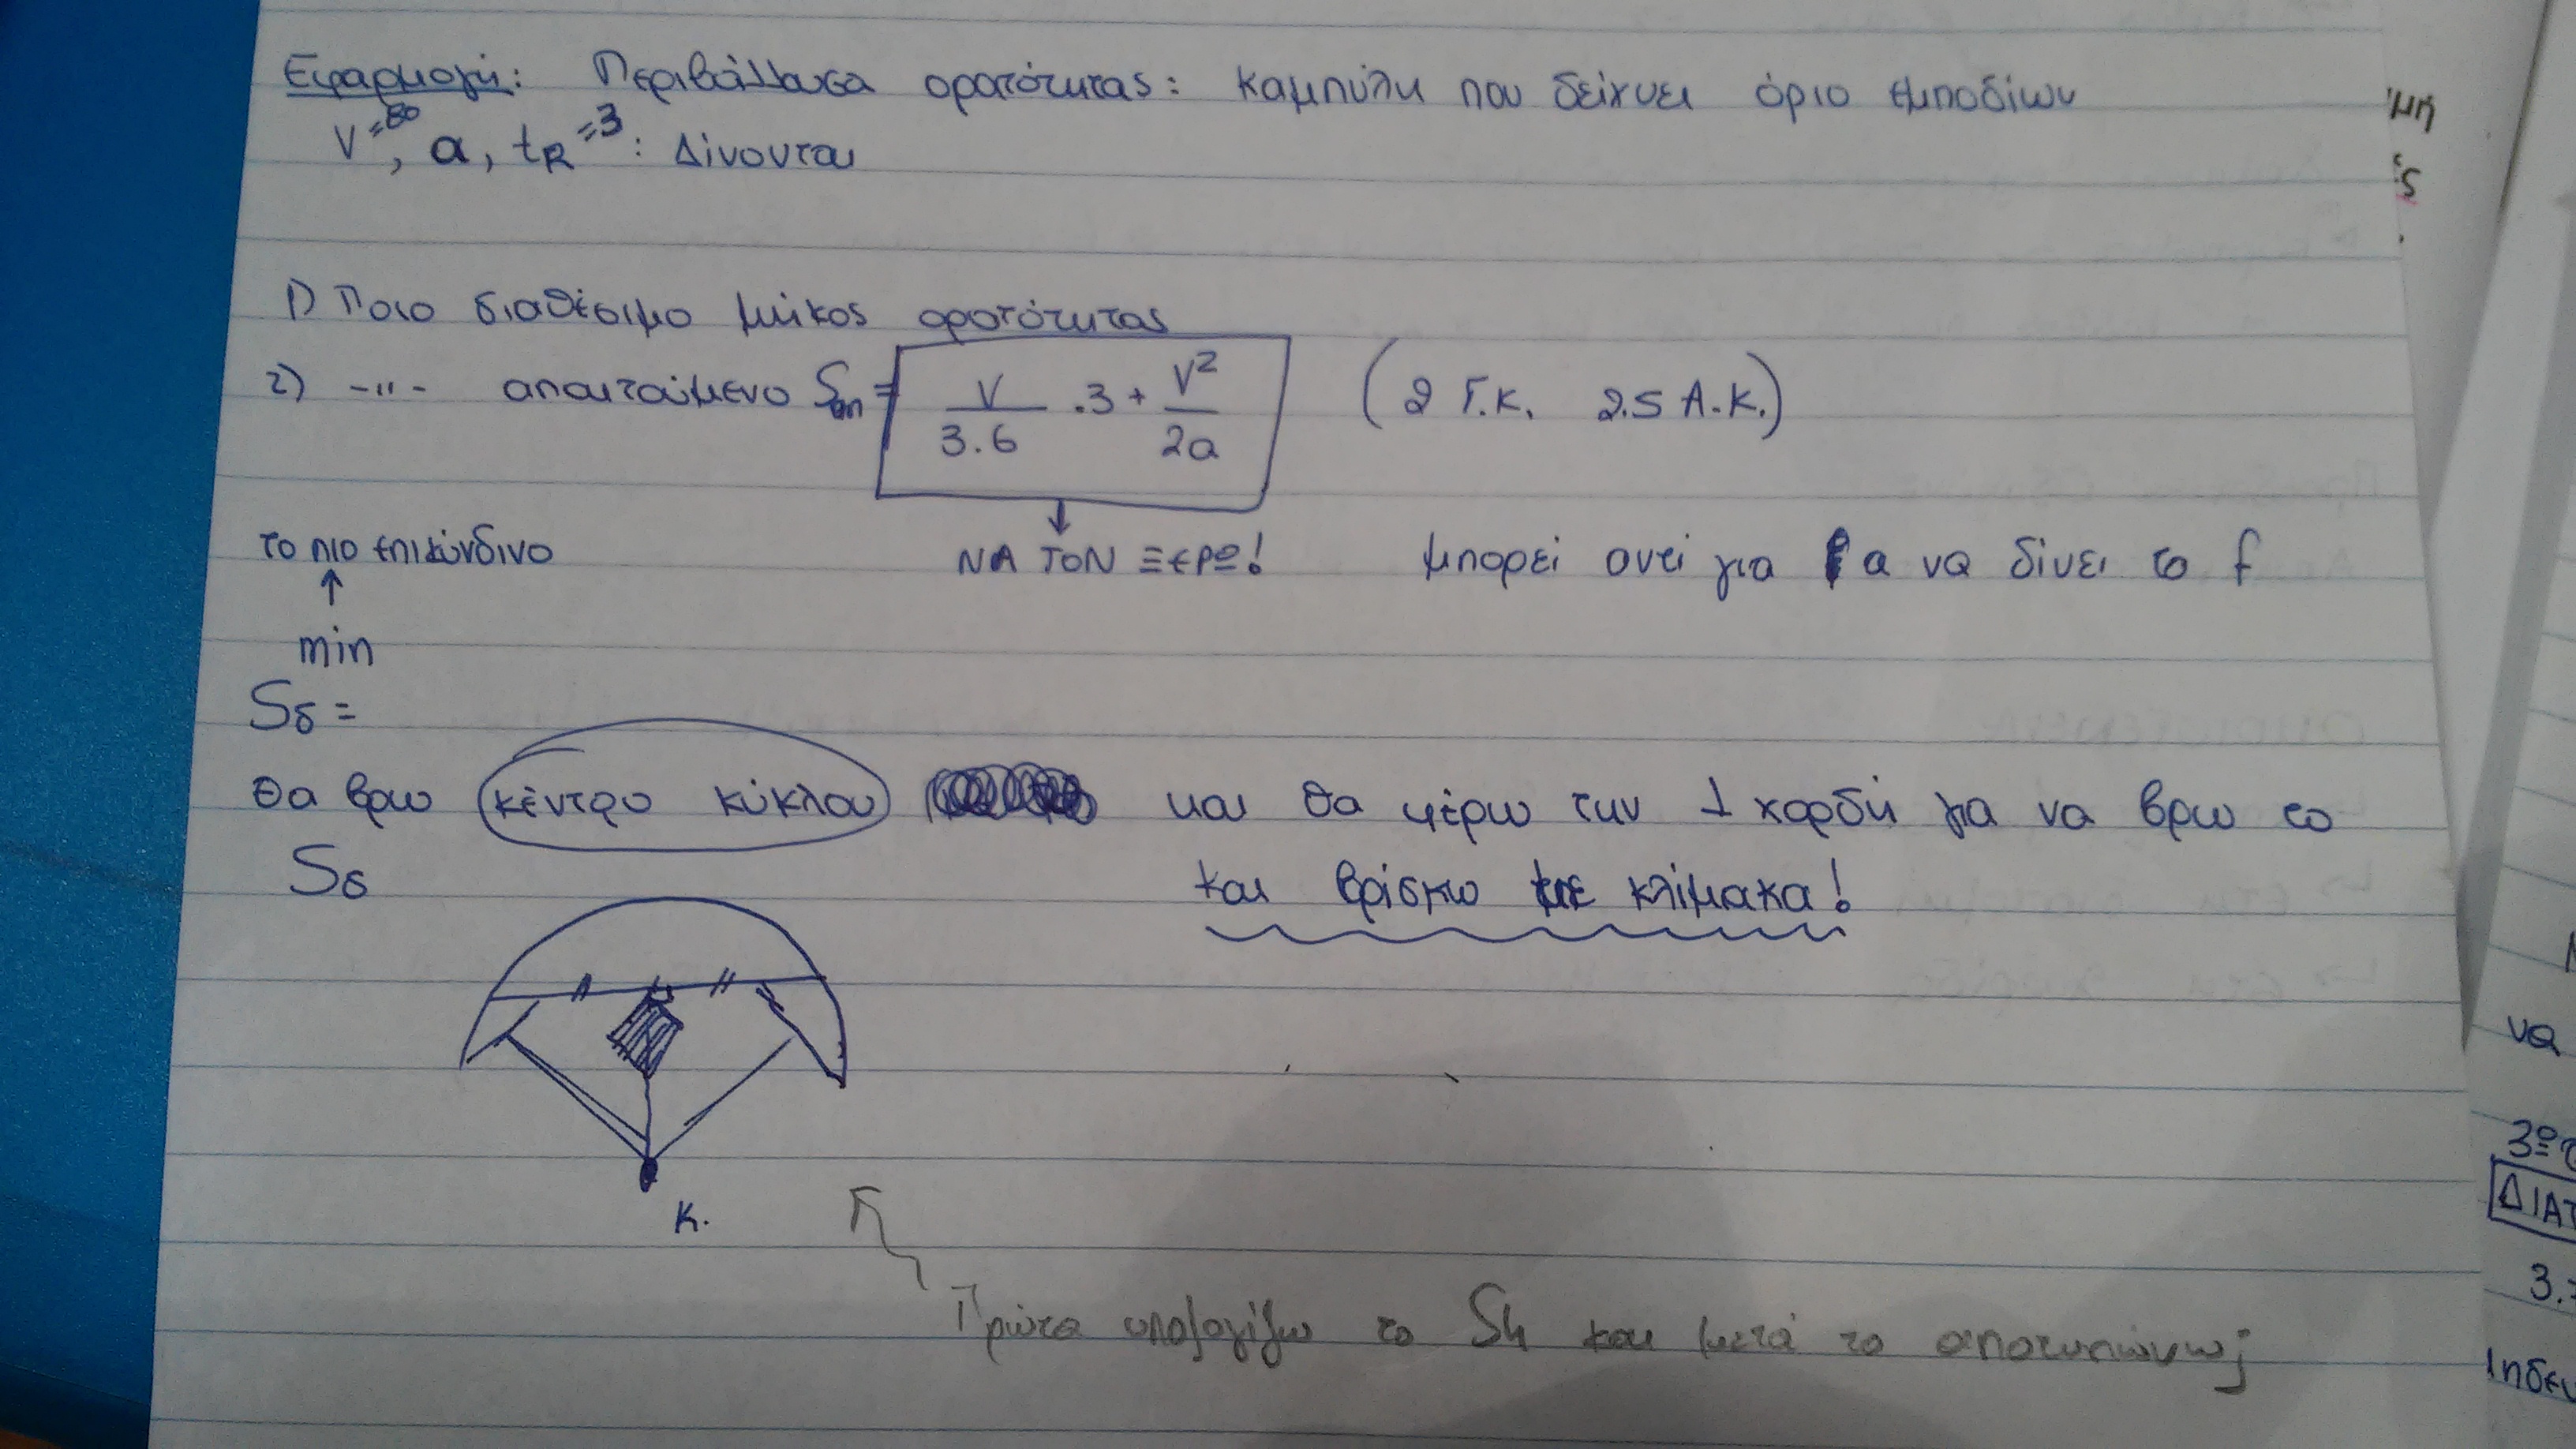 Εφαρμογή: Περιβάλλουσα ορατότητας: καμπύλη που δείχνει όριο εμποδίων
V=80, a, tR=3 : Δίνονται
1) Ποιο διαθέσιμο μήκος ορατότητας
2) -"- απαιτούμενο Sαπ = V/3.6 .3 + V²/2a (2 Γ.Κ. 2.5 Α.Κ.)
το πιο επικίνδυνο
↑
min
ΝΑ ΤΟΝ ΞΕΡΩ! μπορεί αντί για a να δίνει το f
Sδ =
Θα βρω κέντρο κύκλου και θα φέρω την ⊥ χορδή για να βρω το
Sδ και βρίσκω με κλίμακα!
K.
Πρώτα υπολογίζω το Sh και μετά το αποτυπώνω;
μή
ς
να
3º
ΔΙΑΤ
3.